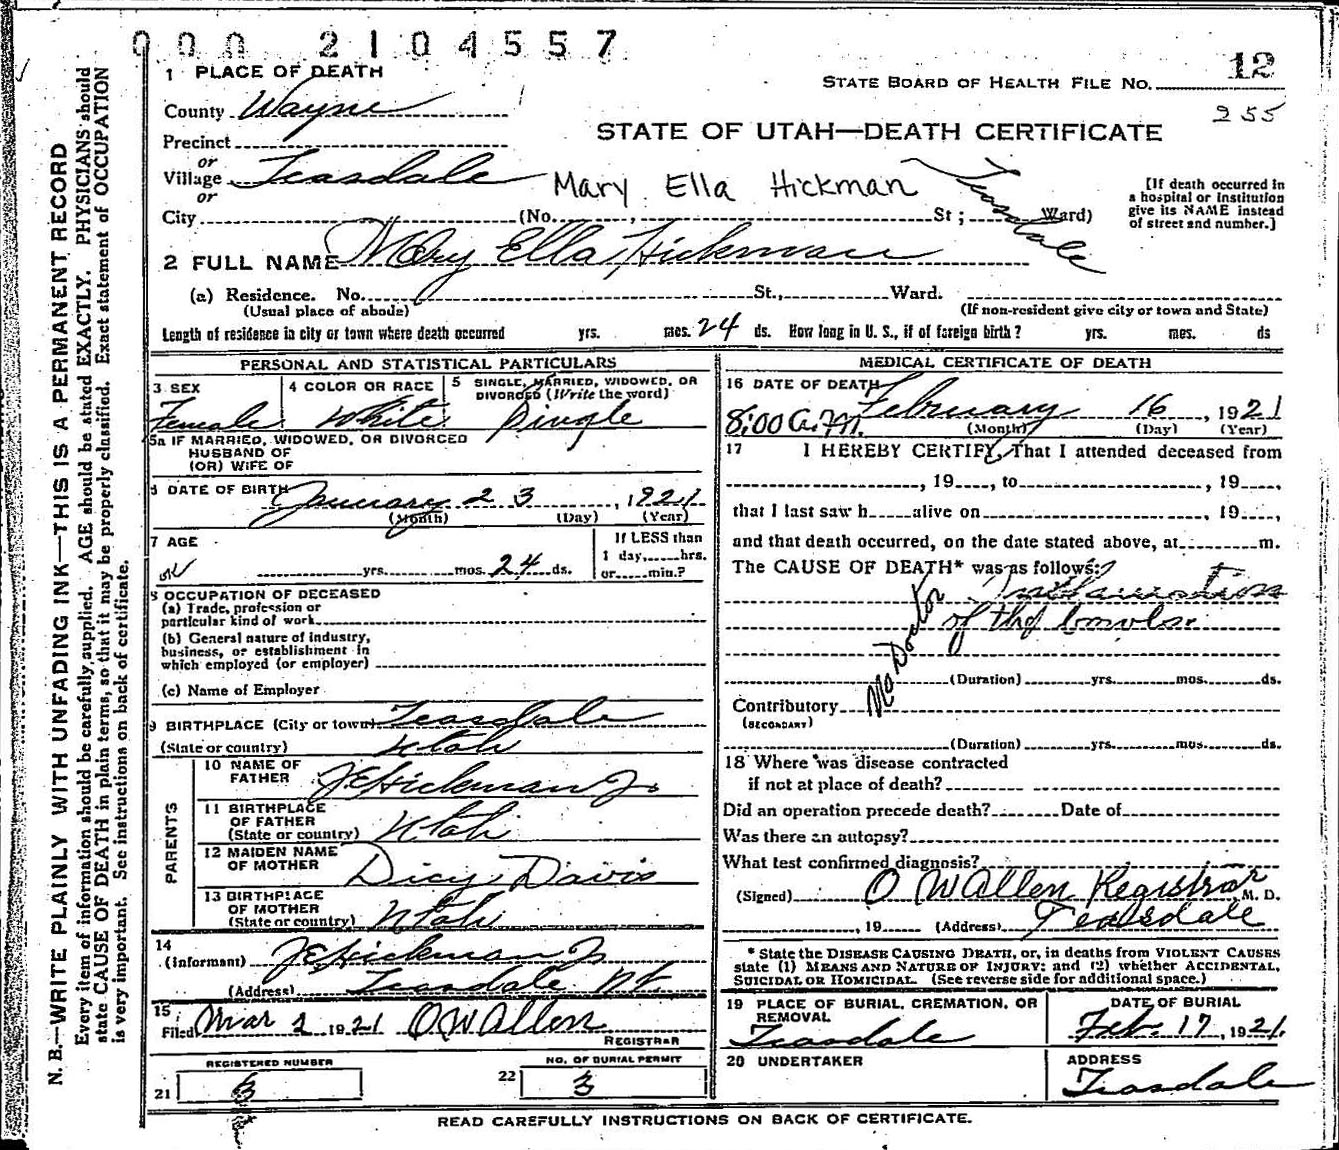 0 0 0 2 1 0 4 5 5 7
12
1 PLACE OF DEATH
STATE BOARD OF HEALTH FILE No.
255
County Wayne
STATE OF UTAH—DEATH CERTIFICATE
Precinct
or
Village Teasdale
or
Mary Ella Hickman
Teasdale
[If death occurred in
a hospital or Institution
give its NAME instead
of street and number.]
City (No. , St ; Ward)
2 FULL NAME Mary Ella Hickman
(a) Residence. No. St., Ward.
(Usual place of abode) (If non-resident give city or town and State)
Length of residence in city or town where death occurred yrs. mos. 24 ds. How long in U. S., if of foreign birth? yrs. mos. ds
PERSONAL AND STATISTICAL PARTICULARS
3 SEX
Female
4 COLOR OR RACE
White
5 SINGLE, MARRIED, WIDOWED, OR
DIVORCED (Write the word)
Single
5a IF MARRIED, WIDOWED, OR DIVORCED
HUSBAND OF
(OR) WIFE OF
6 DATE OF BIRTH
January 23, 1921
(Month) (Day) (Year)
7 AGE
yrs. mos. 24 ds.
If LESS than
1 day, hrs.
or min.?
8 OCCUPATION OF DECEASED
(a) Trade, profession or
particular kind of work
(b) General nature of industry,
business, or establishment in
which employed (or employer)
(c) Name of Employer
9 BIRTHPLACE (City or town) Teasdale
(State or country) Utah
PARENTS
10 NAME OF
FATHER J E Hickman Jr
11 BIRTHPLACE
OF FATHER
(State or country) Utah
12 MAIDEN NAME
OF MOTHER Dicy Davis
13 BIRTHPLACE
OF MOTHER
(State or country) Utah
14
(Informant) J E Hickman Jr
(Address) Teasdale Ut
15
Filed Mar 2 1921 O W Allen
REGISTRAR
REGISTERED NUMBER
21
NO. OF BURIAL PERMIT
22 3
MEDICAL CERTIFICATE OF DEATH
16 DATE OF DEATH
8:00 A.M. February 16, 1921
(Month) (Day) (Year)
17 I HEREBY CERTIFY, That I attended deceased from
, 19 , to , 19 ,
that I last saw h alive on , 19 ,
and that death occurred, on the date stated above, at m.
The CAUSE OF DEATH* was as follows:
of the
No Doctor
(Duration) yrs. mos. ds.
Contributory
(SECONDARY)
(Duration) yrs. mos. ds.
18 Where was disease contracted
if not at place of death?
Did an operation precede death? Date of
Was there an autopsy?
What test confirmed diagnosis?
(Signed) O W Allen Registrar M. D.
, 19 (Address) Teasdale
* State the DISEASE CAUSING DEATH, or, in deaths from VIOLENT CAUSES
state (1) MEANS AND NATURE OF INJURY; and (2) whether ACCIDENTAL,
SUICIDAL OR HOMICIDAL. (See reverse side for additional space.)
19 PLACE OF BURIAL, CREMATION, OR
REMOVAL
Teasdale
DATE OF BURIAL
Feb. 17, 1921.
20 UNDERTAKER
ADDRESS
Teasdale
READ CAREFULLY INSTRUCTIONS ON BACK OF CERTIFICATE.
N. B.—WRITE PLAINLY WITH UNFADING INK—THIS IS A PERMANENT RECORD
Every item of information should be carefully supplied. AGE should be stated EXACTLY. PHYSICIANS should
state CAUSE OF DEATH in plain terms, so that it may be properly classified. Exact statement of OCCUPATION
is very important. See instructions on back of certificate.